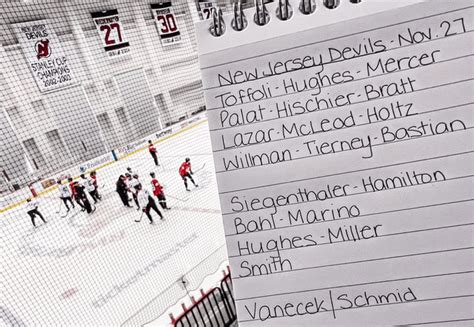 NEW JERSEY
DEVILS
STANLEY CUP
CHAMPIONS
2002-2003
NIEDERMAYER
27
BRODEUR
30
New Jersey Devils - Nov. 27
Toffoli - Hughes - Mercer
Palat - Hischier - Bratt
Lazar - McLeod - Holtz
Willman - Tierney - Bastian
Siegenthaler - Hamilton
Bahl - Marino
Hughes - Miller
Smith
Vanecek/Schmid